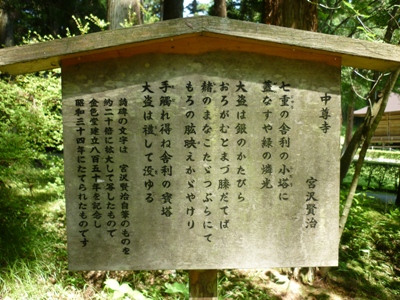 中尊寺
宮沢賢治
七重の舎利の小塔に
蓋なすや緑の燐光
大盗は銀のかたびら
おろがむとまづ膝だてば
赭のまなこたゞつぶらにて
もろの肱映えかゞやけり
手触れ得ね舎利の宝塔
大盗は禮して没ゆる
詩碑の文字は 宮沢賢治自筆のものを
約二十倍に拡大して写したもので
金色堂建立八百五十年を記念し
昭和三十四年にたてられたものです